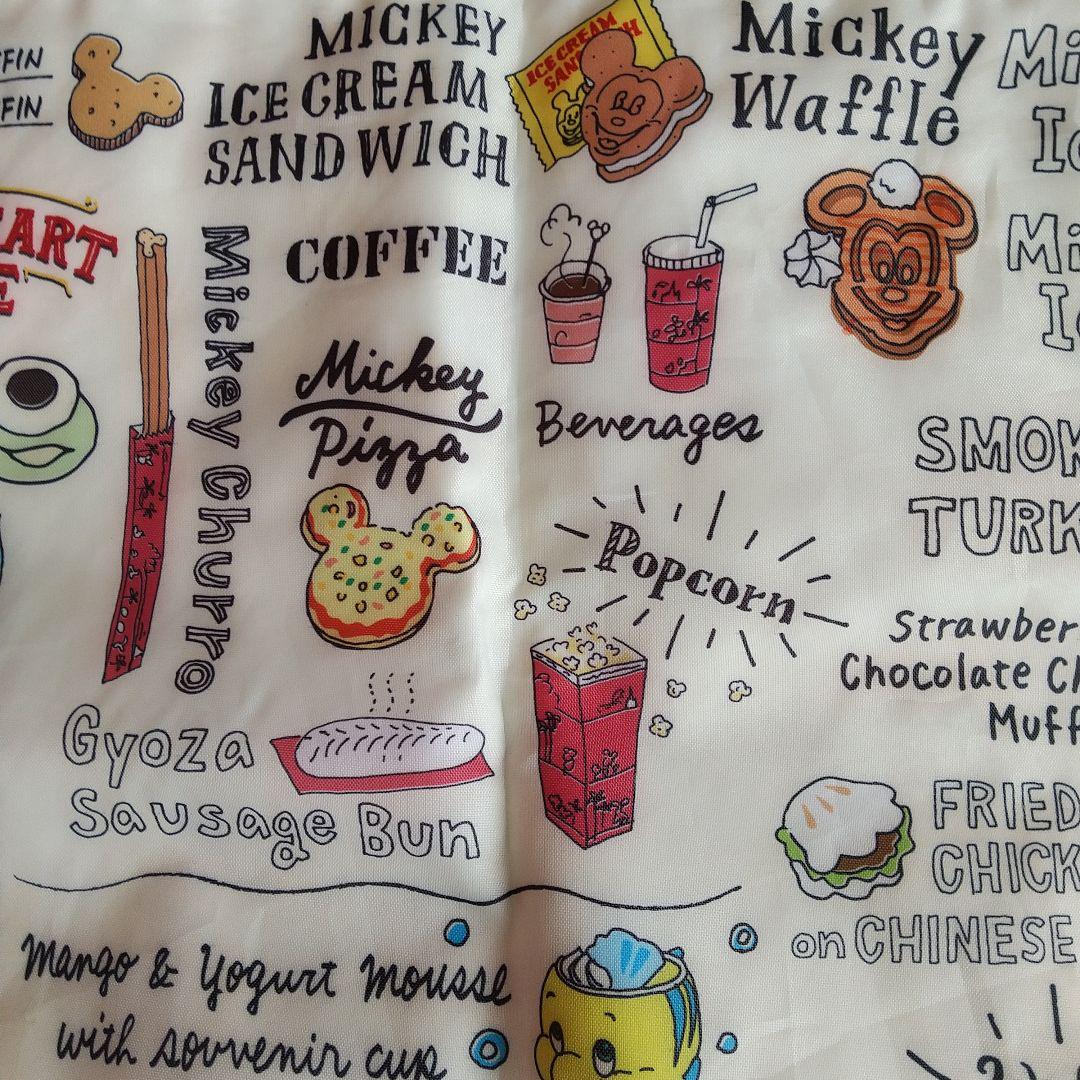 FIN
FIN
MICKEY
ICE CREAM
SANDWICH
ICE CREAM
Mickey
Waffle
COFFEE
Mickey Churro
Mickey
Pizza
Beverages
SMOK
TURK
Popcorn
Strawber
Chocolate Ch
Muff
Gyoza
Sausage Bun
FRIED
CHICK
on CHINESE
Mango & Yogurt Mousse
with souvenir cup